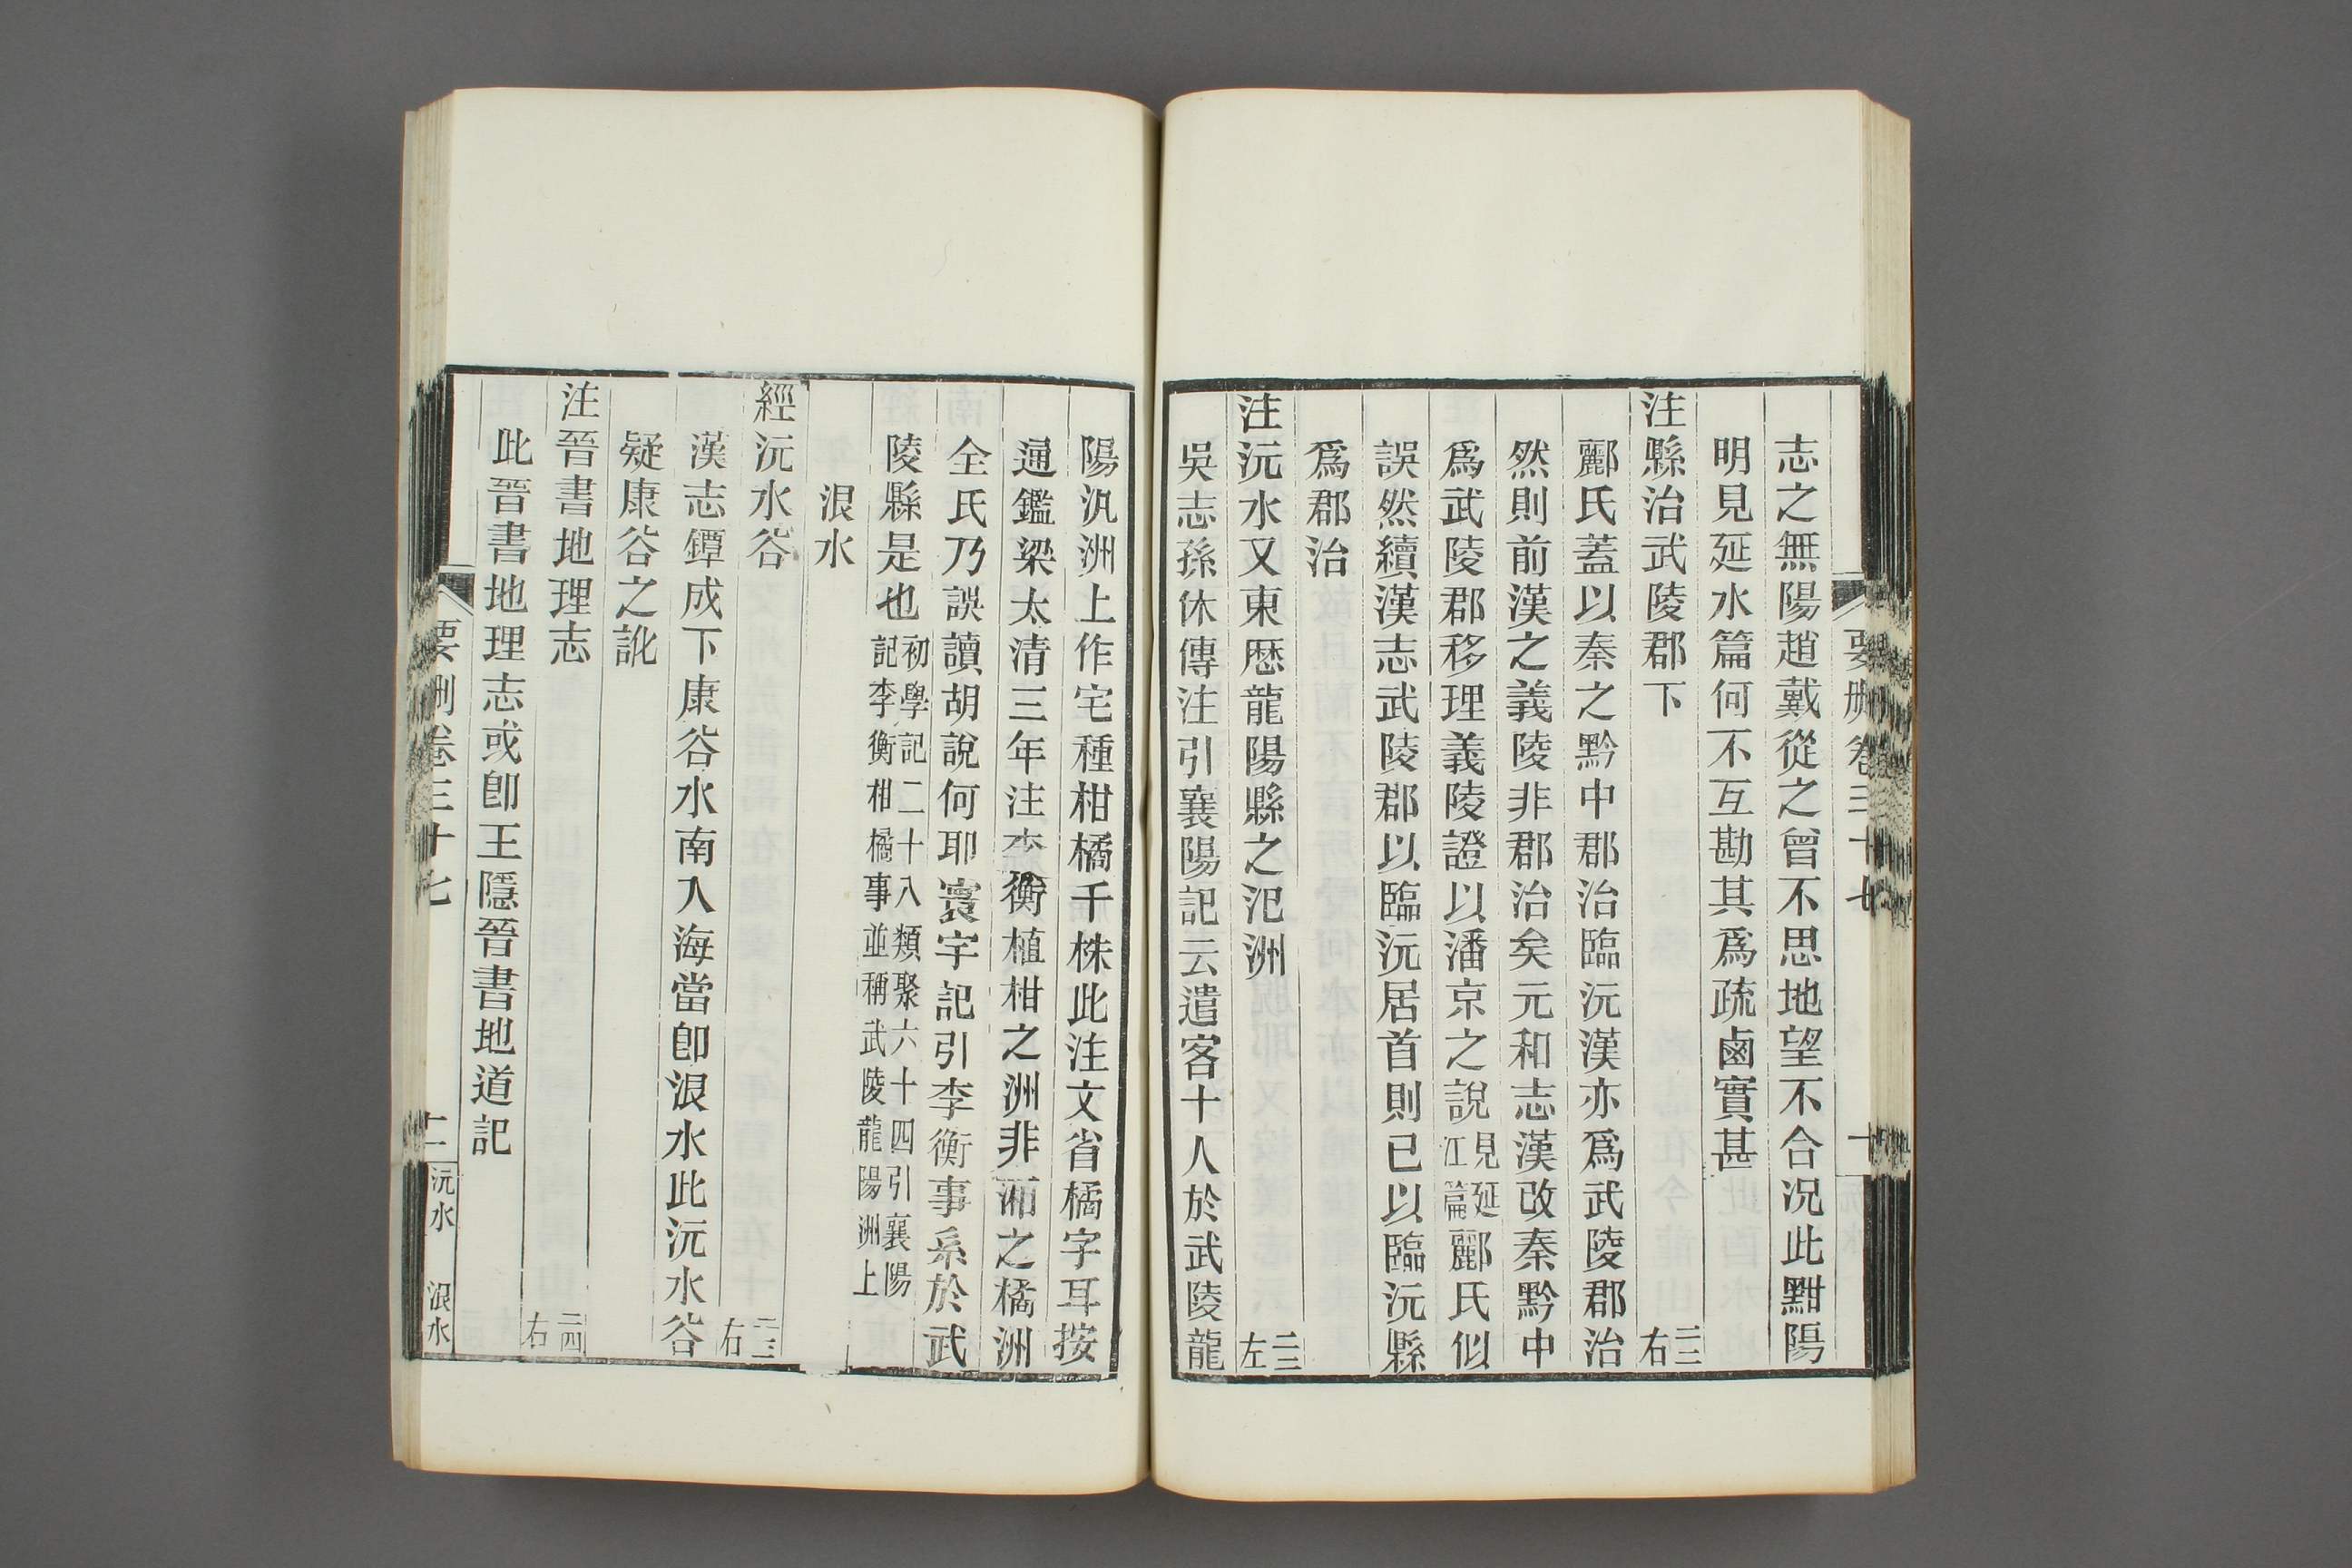 要刪卷三十七
十
志之無陽趙戴從之曾不思地望不合況此黚陽
明見延水篇何不互勘其爲疏鹵實甚
注縣治武陵郡下 二三右
酈氏蓋以秦之黔中郡治臨沅漢亦爲武陵郡治
然則前漢之義陵非郡治矣元和志漢改秦黔中
爲武陵郡移理義陵證以潘京之說見延江篇酈氏似
誤然續漢志武陵郡以臨沅居首則已以臨沅縣
爲郡治
注沅水又東歷龍陽縣之氾洲 二三左
吳志孫休傳注引襄陽記云遣客十人於武陵龍
陽汎洲上作宅種柑橘千株此注文省橘字耳按
通鑑梁太清三年注李衡植柑之洲非湘之橘洲
全氏乃誤讀胡說何耶寰宇記引李衡事系於武
陵縣是也初學記二十八類聚六十四引襄陽記李衡柑橘事並稱武陵龍陽洲上
浪水
經沅水谷 二三右
漢志鐔成下康谷水南入海當卽浪水此沅水谷
疑康谷之訛
注晉書地理志 二四右
此晉書地理志或卽王隱晉書地道記
要刪卷三十七
沅水 浪水